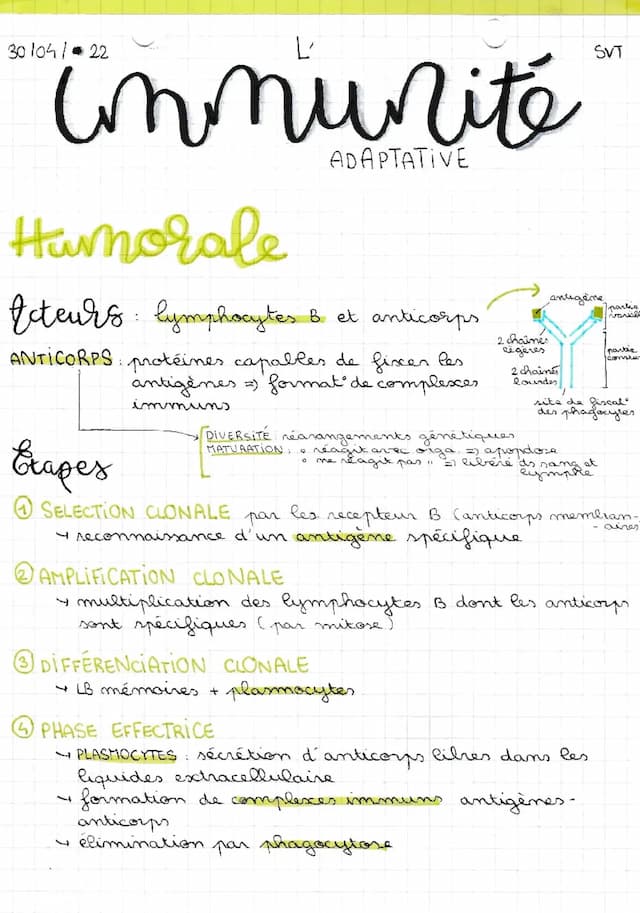 30/04/22
L'
SVT
immunité
ADAPTATIVE
Humorale
Acteurs : lymphocytes B et anticorps
ANTICORPS : protéines capables de fixer les
antigènes => format° de complexes
immuns
antigène
partie
variable
2 chaînes
légères
partie
constan
2 chaînes
lourdes
site de fixat°
des phagocytes
DIVERSITÉ : réarangements génétiques
MATURATION : • réagit avec orga. => apoptose
• ne réagit pas " => libéré ds sang et
lymphe
Étapes
① SELECTION CLONALE par les recepteur B (anticorps membran-
-aires)
↳ reconnaissance d'un antigène spécifique
② AMPLIFICATION CLONALE
↳ multiplication des lymphocytes B dont les anticorps
sont spécifiques (par mitose)
③ DIFFÉRENCIATION CLONALE
↳ LB mémoires + plasmocytes
④ PHASE EFFECTRICE
↳ PLASMOCYTES : sécrétion d'anticorps libres dans les
liquides extracellulaire
↳ formation de complexes immuns antigènes-
anticorps
↳ élimination par phagocytose